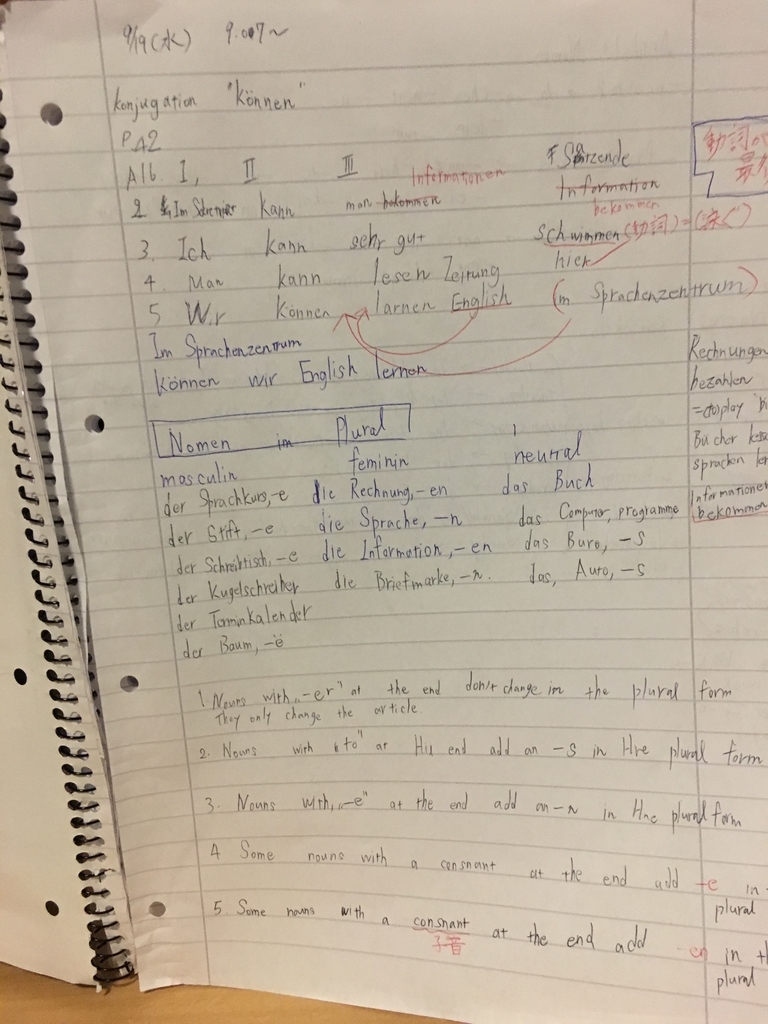 9/19(水) 9.007~
konjugation "können"
PA2
A16. I, II III
Informationen
2 Im kann man bekommen Information
bekommen
3. Ich kann sehr gut schwimmen(動詞)=(泳ぐ)
4. Man kann lesen Zeitung hier
5 Wir können larnen English (im Sprachenzentrum)
Im Sprachenzentrum
können wir English lernen
動詞が
Nomen im Plural
masculin feminin neutral
der Sprachkurs,-e die Rechnung,-en das Buch
der Stift,-e die Sprache,-n das Computer, programme
der Schreibtisch,-e die Information,-en das Buro,-s
der Kugelschreiber die Briefmarke,-n. das, Auto,-s
der Terminkalender
der Baum,-ë
Rechnungen
bezahlen
Bücher
sprachen
Informationen
bekommen
1 Nouns with „-er" at the end don't change in the plural form
They only change the article.
2. Nouns with "to" at end add an -s in plural form
3. Nouns with „-e" at the end add an -n in plural form
4 Some nouns with a consnant at the end add -e in
plural
5. Some nouns with a consnant at the end add -en in
子音
plural